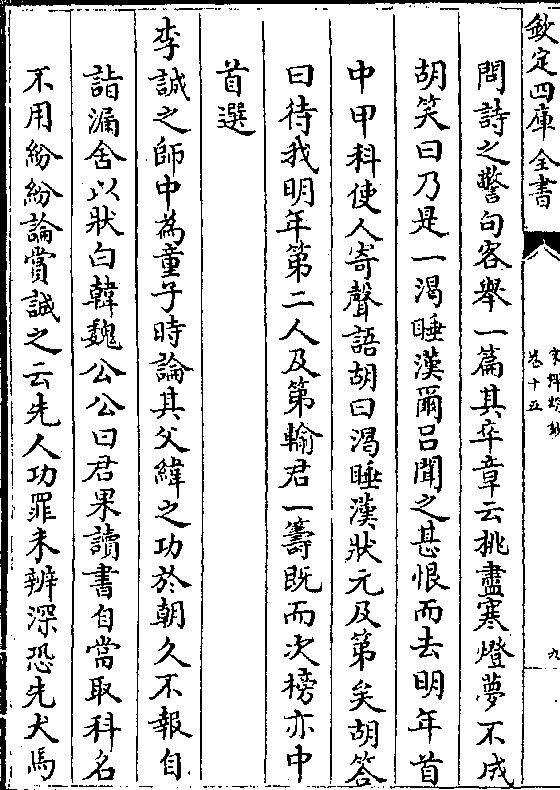 欽定四庫全書
卷十五
九
問詩之警句客舉一篇其卒章云挑盡寒燈夢不成
胡笑曰乃是一渴睡漢爾呂聞之甚恨而去明年首
中甲科使人寄聲語胡曰渴睡漢狀元及第矣胡答
曰待我明年第二人及第輸君一籌既而次榜亦中
首選
李誠之師中為童子時論其父緯之功於朝久不報自
詣漏舍以狀白韓魏公公曰君果讀書自當取科名
不用紛紛論賞誠之云先人功罪未辨深恐先犬馬